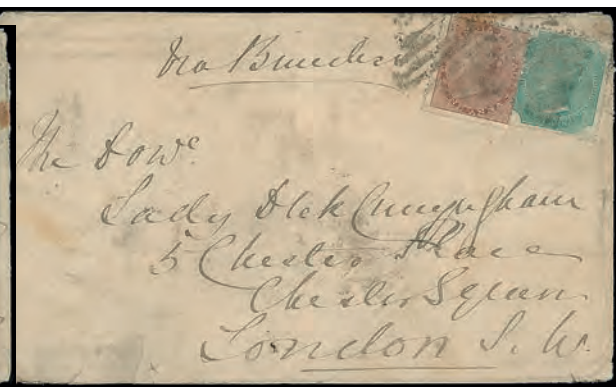 Via Brindisi
The Dowr
Lady Dick Cunyngham
5 Chester Place
Chester Square
London S. W.